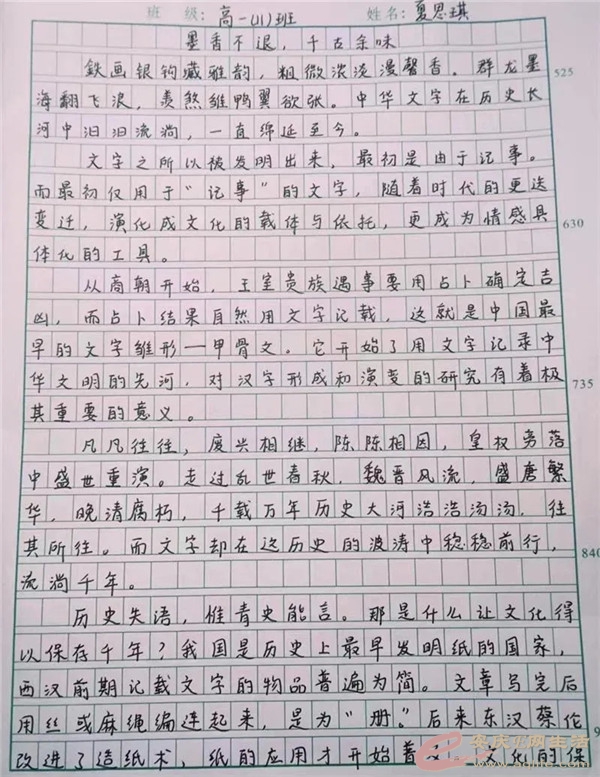 班 级：高一(11)班 姓名：夏思琪
墨香不退，千古余味
鉄画银钩藏雅韵，粗微浓淡漫馨香。群龙墨 525
海翻飞浪，羡煞雏鸭翼欲张。中华文字在历史长
河中汩汩流淌，一直绵延至今。
文字之所以被发明出来，最初是由于记事。
而最初仅用于“记事”的文字，随着时代的更迭
变迁，演化成文化的载体与依托，更成为情感具 630
体化的工具。
从商朝开始，王室贵族遇事要用占卜确定吉
凶，而占卜结果自然用文字记载，这就是中国最
早的文字雏形—甲骨文。它开始了用文字记录中
华文明的先河，对汉字形成和演变的研究有着极 735
其重要的意义。
凡凡往往，废兴相继，陈陈相因，皇权旁落
中盛世重演。走过乱世春秋，魏晋风流，盛唐繁
华，晚清腐朽，千载万年历史大河浩浩汤汤，往
其所往。而文字却在这历史的波涛中稳稳前行， 840
流淌千年。
历史失语，惟青史能言。那是什么让文化得
以保存千年？我国是历史上最早发明纸的国家，
西汉前期记载文字的物品普遍为简。文章写完后
用丝或麻绳编连起来，是为“册”。后来东汉蔡伦 9
改进了造纸术，纸的应用才开始普及。文化的保